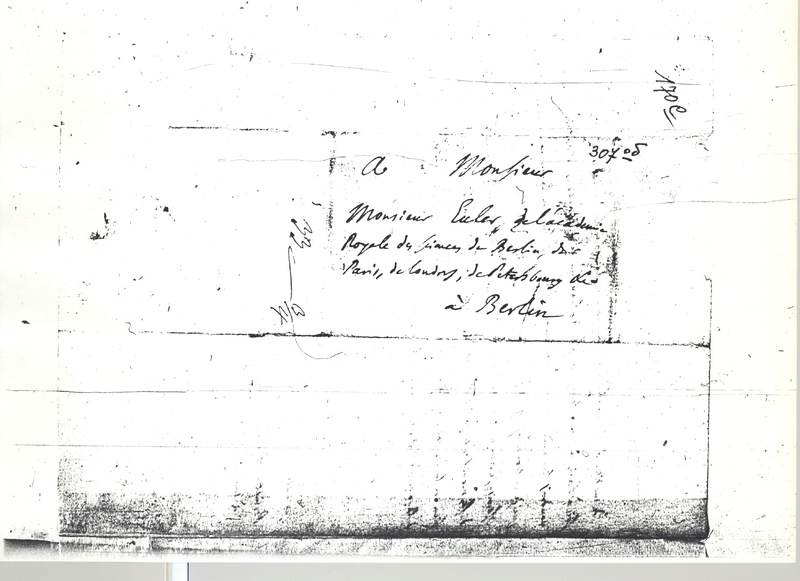 307 od
A Monsieur
Monsieur Euler, de l'académie
Royale des sciences de Berlin, de
Paris, de Londres, de Petersbourg &c
à Berlin